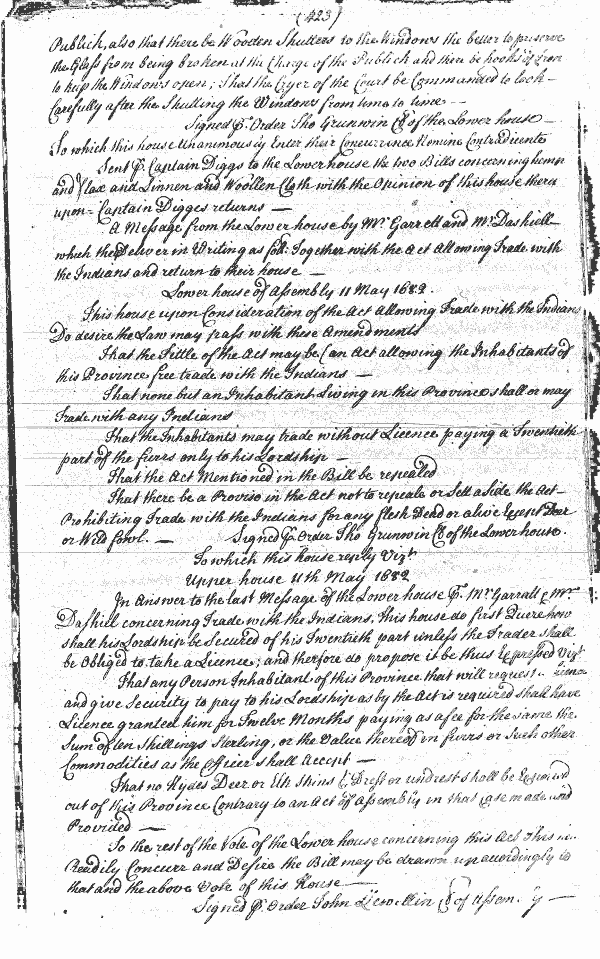 (423)
Publick, also that there be Wooden Shutters to the Windows the better to preserve
the Glass from being broken at the Charge of the Publick and there be hooks of Iron
to keep the Windows open; That the Cryer of the Court be Commanded to look
Carefully after the Shutting the Windows from time to time --
Signed P. Order Tho Grunwin Cl of the Lower house -
To which this house Unanimously Enter their Concurrence Nemine Contradicente
Sent P. Captain Diggs to the Lower house the two Bills concerning hemp
and Flax and Linnen and Woollen Cloth with the Opinion of this house there
upon - Captain Digges returns —
A Message from the Lower house by Mr. Garrett and Mr. Dashiell
which they Deliver in Writing as foll: Together with the Act Allowing Trade with
the Indians and return to their house —
Lower house of Assembly 11 May 1682.
This house upon Consideration of the Act Allowing Trade with the Indians
Do desire the Law may pass with these Amendments
That the Tittle of the Act may be (an Act allowing the Inhabitants of
this Province free trade with the Indians —
That none but an Inhabitant Living in this Province shall or may
Trade with any Indians
That the Inhabitants may trade without Licence paying a Twentieth
part of the furrs only to his Lordship —
That the Act Mentioned in the Bill be repealed
That there be a Proviso in the Act not to repeale or Sett aside the Act
Prohibiting Trade with the Indians for any flesh Dead or alive Except Deer
or Wild fowl. — Signed P. Order Tho Grunwin Cl of the Lower house.
To which this house reply Vizt.
Upper house 11th May 1682
In Answer to the last Message of the Lower house P. Mr. Garratt & Mr.
Dashiel concerning Trade with the Indians, This house do first Quere how
shall his Lordship be Secured of his Twentieth part unless the Trader shall
be Obliged to take a Licence; and therefore do propose it be thus Expressed Vizt
That any Person Inhabitant of this Province that will request
and give Security to pay to his Lordship as by the Act is required shall have
Licence granted him for Twelve Months paying as a fee for the same the
Sum of ten Shillings Sterling, or the Value thereof in furrs or Such other
Commodities as the Officer shall Accept —
That no Hydes Deer or Elk Skins Drest or undrest shall be
out of this Province Contrary to an Act of Assembly in that Case made and
Provided —
To the rest of the Vote of the Lower house concerning this Act
Readily Concurr and Desire the Bill may be drawn up accordingly to
that and the above Vote of this House —
Signed P. Order John Llewellin Cl of Assembly —